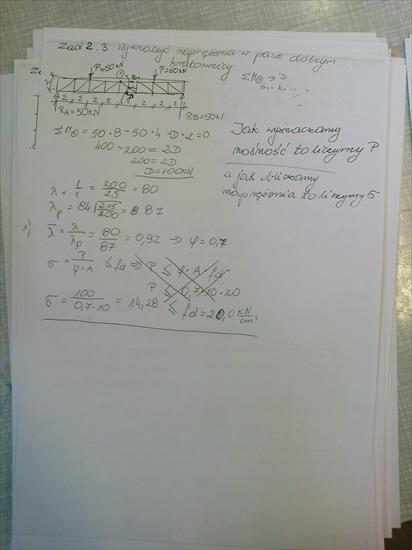 Zad 2.3 Wyznaczyć naprężenia w pasie dolnym
kratownicy
P=50kN P=50kN
2 2 2 2 2 2 2
RA=50kN RB=50kN
ΣM① = 50·8-50·4-D·2=0
400-200=2D
200=2D
D=100kN
Jak wyznaczamy
nośność to liczymy P
a jak obliczamy
naprężenia to liczymy σ
λ = l/i = 200/2,5 = 80
λp = 84√215/200 = 87
1) λ̄ = λ/λp = 80/87 = 0,92 ⇒ φ=0,7
σ = P/φ·A ≤ fd ⇒ P ≤ φ·A·fd
P ≤ 0,7·10·20
σ = 100/0,7·10 = 14,28 ≤ fd = 20,0 kN/cm²